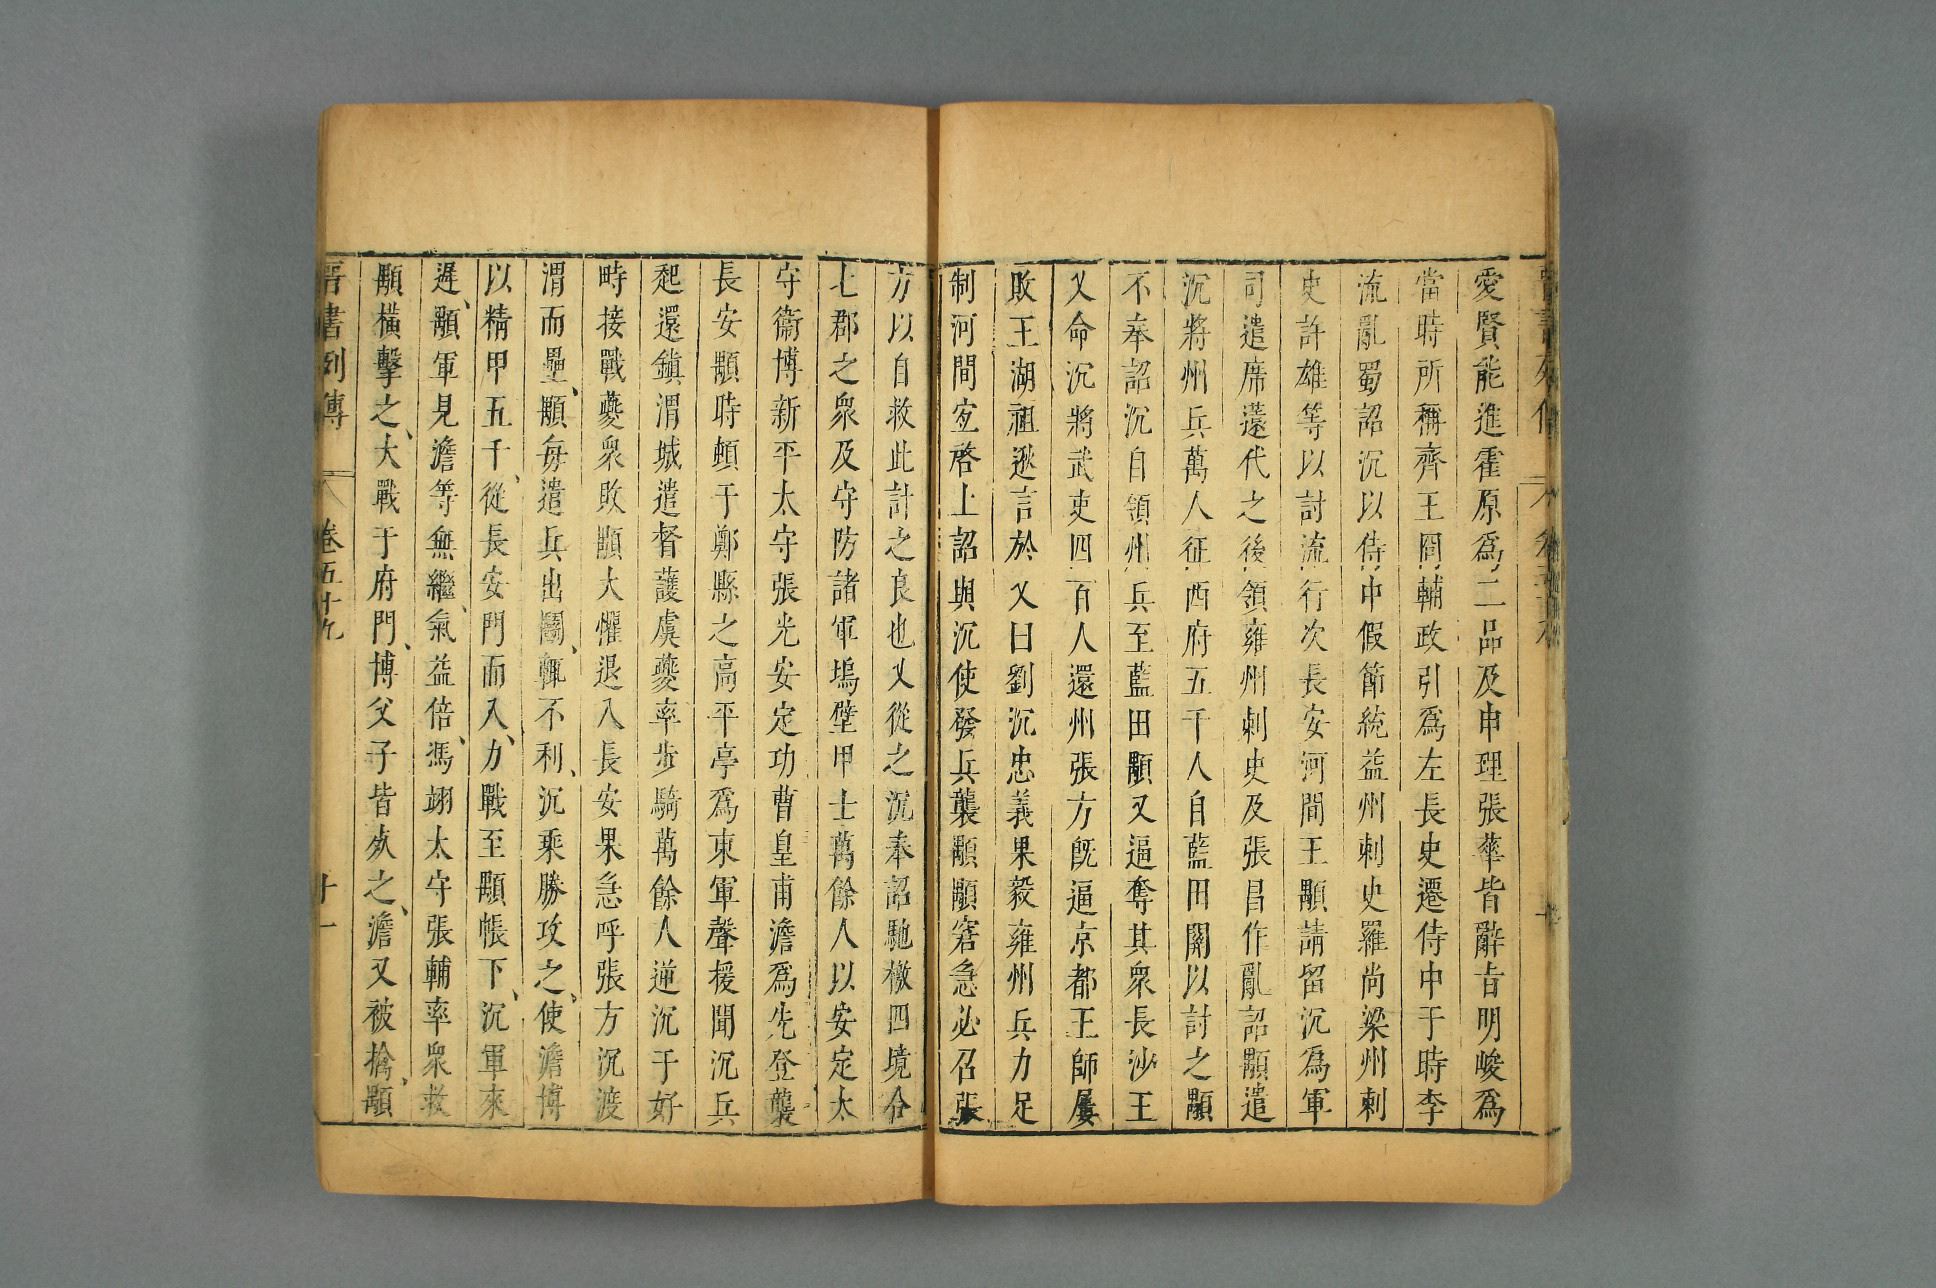 愛賢能進霍原爲二品及申理張華皆辭旨明峻爲
當時所稱齊王冏輔政引爲左長史遷侍中于時李
流亂蜀詔沉以侍中假節統益州刺史羅尚梁州刺
史許雄等以討流行次長安河間王顒請留沉爲軍
司遣席薳代之後領雍州刺史及張昌作亂詔顒遣
沉將州兵萬人征西府五千人自藍田關以討之顒
不奉詔沉自領州兵至藍田顒又逼奪其衆長沙王
乂命沉將武吏四百人還州張方旣逼京都王師屢
敗王湖祖逖言於乂曰劉沉忠義果毅雍州兵力足
制河間宜啓上詔與沉使發兵襲顒顒窘急必召張
方以自救此計之良也乂從之沉奉詔馳檄四境合
七郡之衆及守防諸軍塢壁甲士萬餘人以安定太
守衞博新平太守張光安定功曹皇甫澹爲先登襲
長安顒時頓于鄭縣之高平亭爲東軍聲援聞沉兵
起還鎮渭城遣督護虞夔率步騎萬餘人逆沉于好
畤接戰夔衆敗顒大懼退入長安果急呼張方沉渡
渭而壘、顒每遣兵出鬪、輒不利、沉乘勝攻之、使澹博
以精甲五千、從長安門而入、力戰至顒帳下、沉軍來
遲、顒軍見澹等無繼、氣益倍、馮翊太守張輔率衆救
顒橫擊之、大戰于府門、博父子皆死之、澹又被擒、顒
晉書列傳 卷五十九 十一